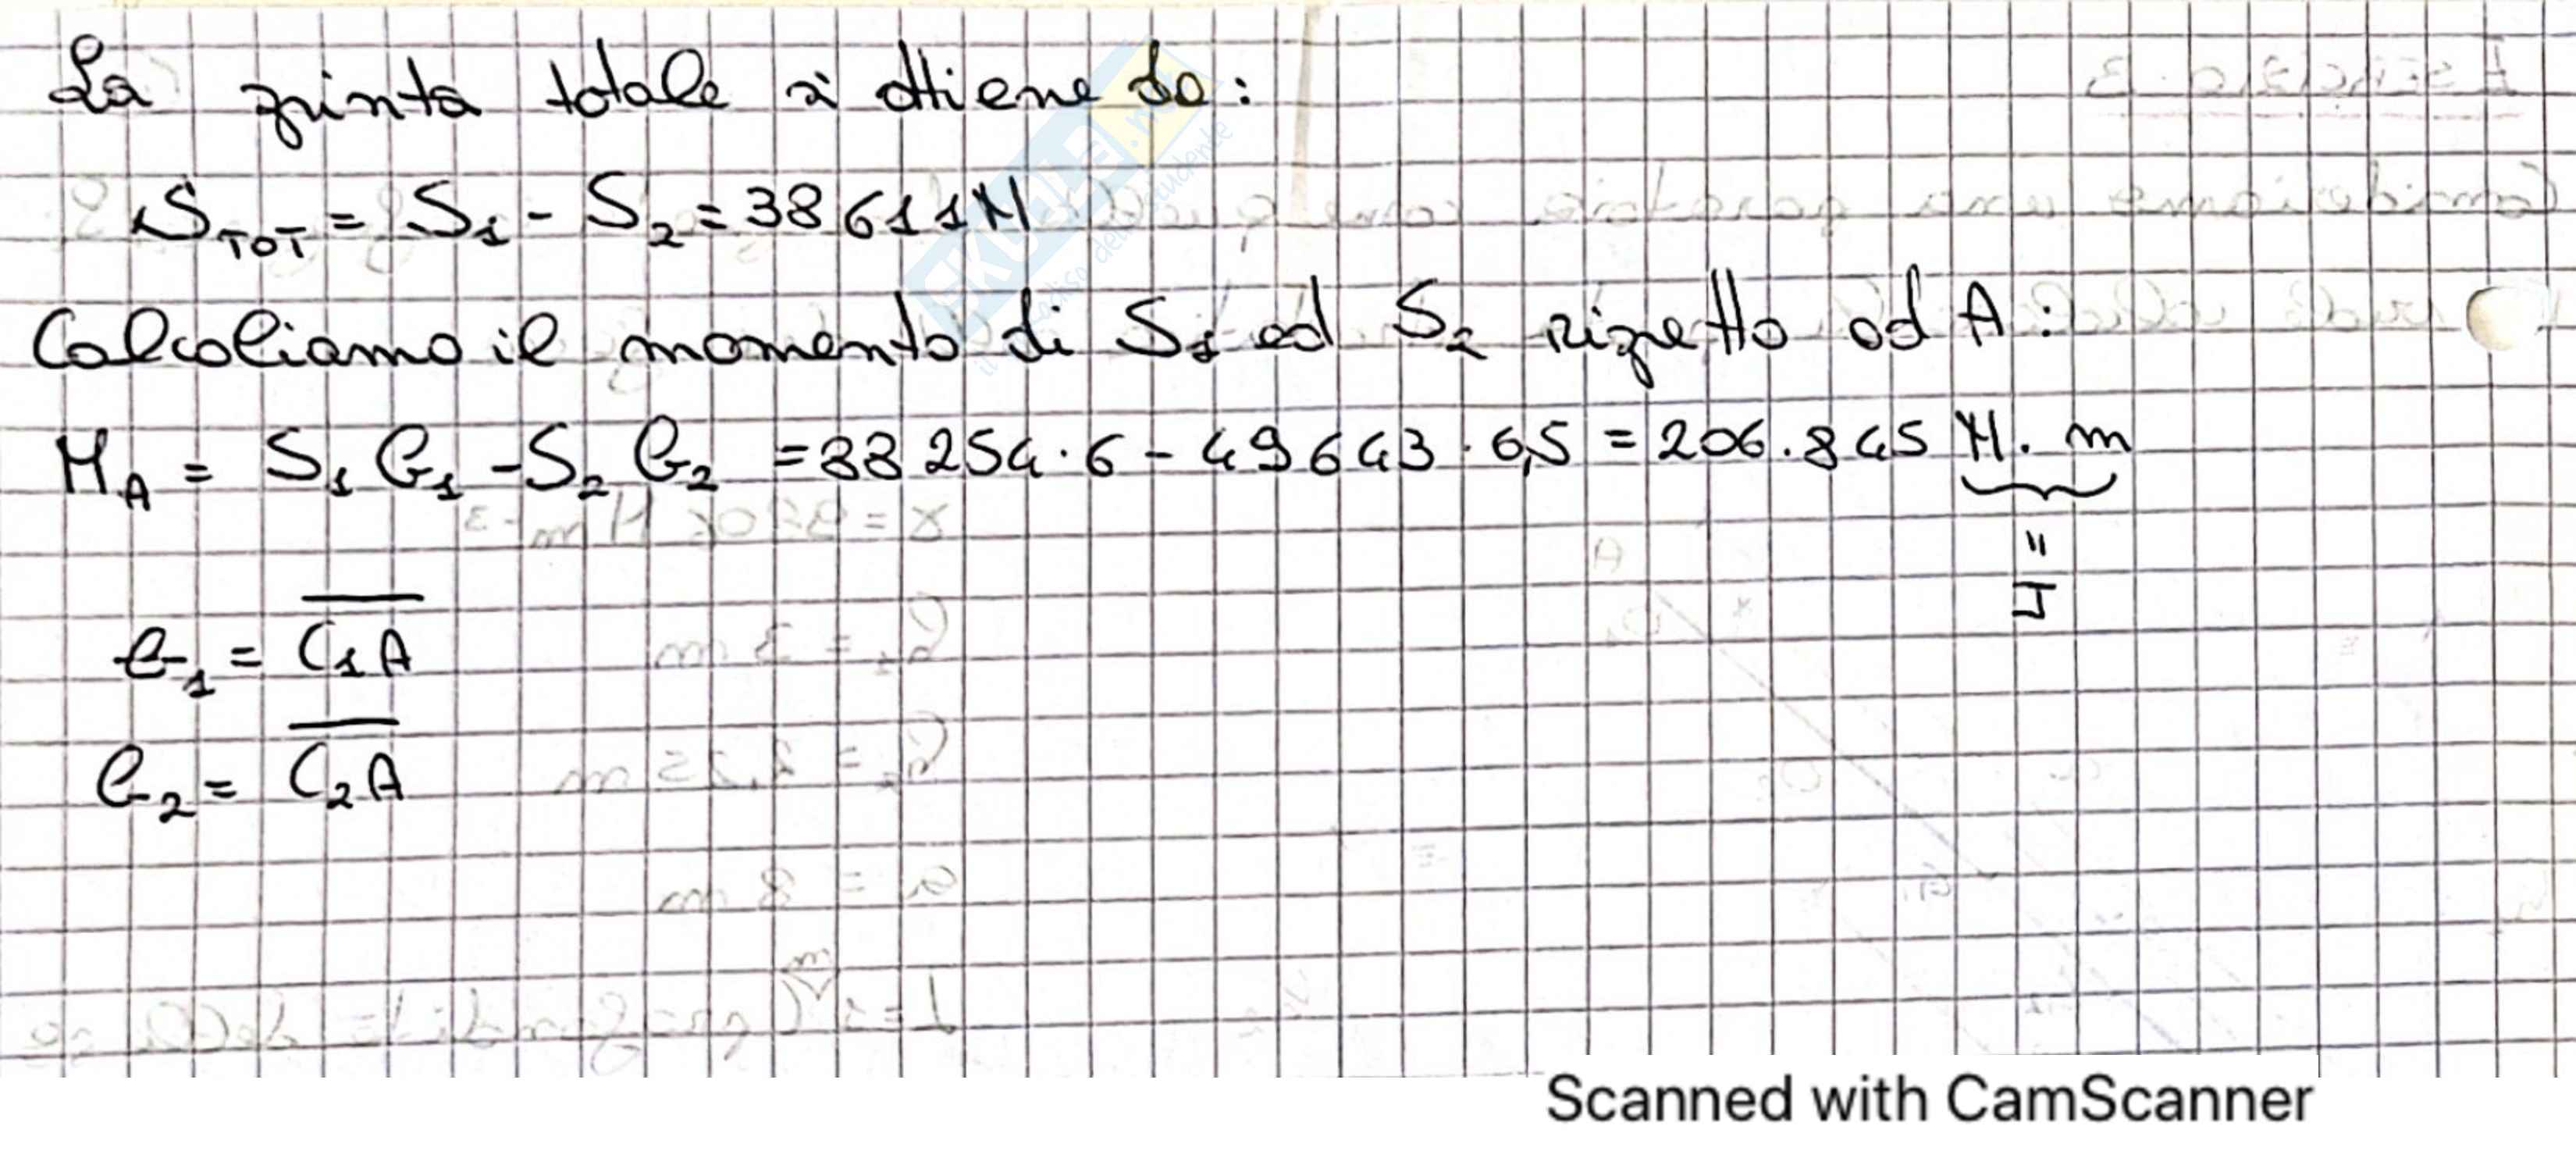 La spinta totale si ottiene da:
S_TOT = S_1 - S_2 = 38 611 N
Calcoliamo il momento di S_1 ed S_2 rispetto ad A:
M_A = S_1 b_1 - S_2 b_2 = 88 254 · 6 - 49 643 · 6,5 = 206.845 N · m
= J
b_1 = C_1A
b_2 = C_2A
SKUOLA.net
il paradiso dello studente
Scanned with CamScanner